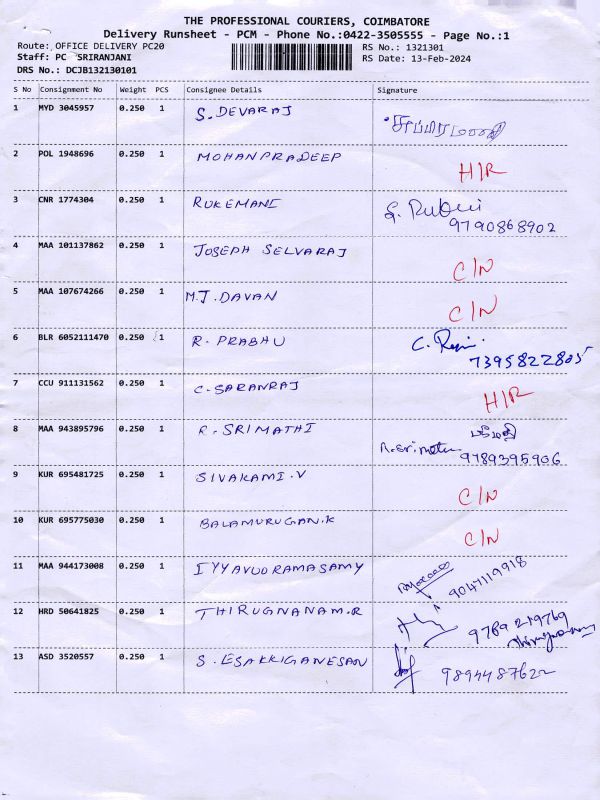 THE PROFESSIONAL COURIERS, COIMBATORE
Delivery Runsheet - PCM - Phone No.:0422-3505555 - Page No.:1
Route: OFFICE DELIVERY PC20 RS No.: 1321301
Staff: PC SRIRANJANI RS Date: 13-Feb-2024
DRS No.: DCJB132130101
S No Consignment No Weight PCS Consignee Details Signature
1 MYD 3045957 0.250 1 S. DEVARAJ
2 POL 1948696 0.250 1 MOHANPRADEEP H/R
3 CNR 1774304 0.250 1 RUKEMANI
9790868902
4 MAA 101137862 0.250 1 JOSEPH SELVARAJ C/N
5 MAA 107674266 0.250 1 M.J. DAVAN C/N
6 BLR 6052111470 0.250 1 R. PRABHU
7395822805
7 CCU 911131562 0.250 1 C. SARANRAJ H/R
8 MAA 943895796 0.250 1 R. SRIMATHI
9789395906
9 KUR 695481725 0.250 1 SIVAKAMI.V C/N
10 KUR 695775030 0.250 1 BALAMURUGAN.K C/N
11 MAA 944173008 0.250 1 IYYAVUORAMASAMY 9047119918
12 HRD 50641825 0.250 1 THIRUGNANAM.R 9769219769
13 ASD 3520557 0.250 1 S. ESAKKIGANESAN 9894487622